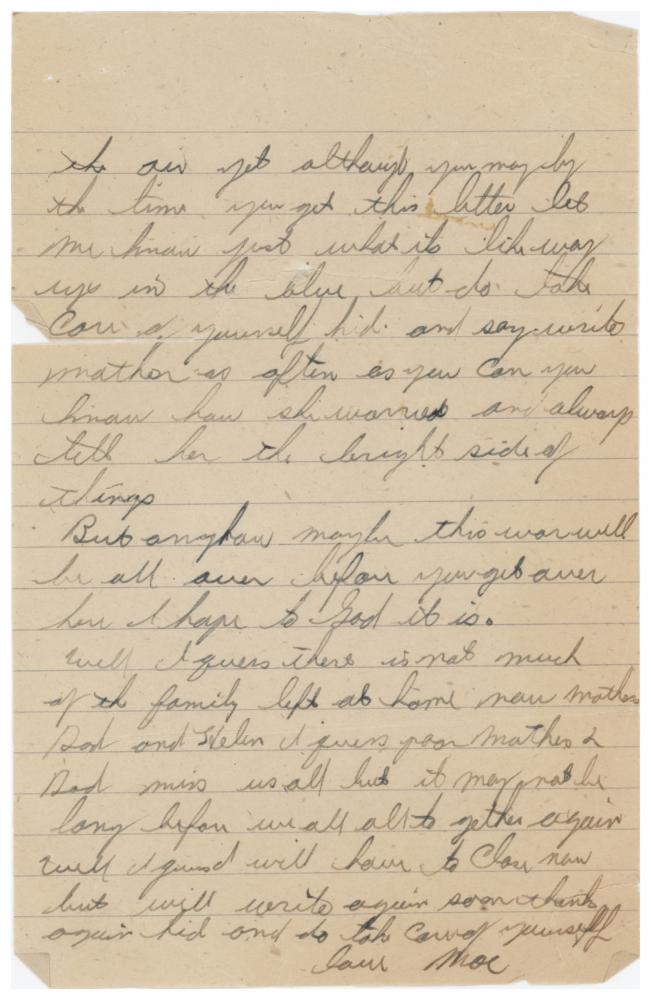 the air yet although you may by
the time you get this letter let
me know just what its like way
up in the blue but do take
Care of yourself kid. and say write
mother as often as you can you
know how she worries and always
tell her the bright side of
things
But anyhow maybe this war will
be all over before you get over
here I hope to God it is.
Well I guess there is not much
of the family left at home now Mother
Dad and Helen I guess poor Mother &
Dad miss us all but it may not be
long before we all all to gether again
Well I guess I will have to Close now
but will write again soon thanks
again kid and do take Care of yourself
Love Moe